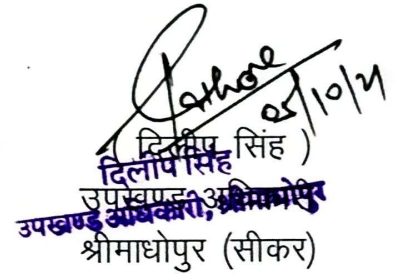 Rathore
05/10/21
( दिलीप सिंह )
दिलीप सिंह
उपखण्ड अधिकारी
उपखण्ड अधिकारी, श्रीमाधोपुर
श्रीमाधोपुर (सीकर)